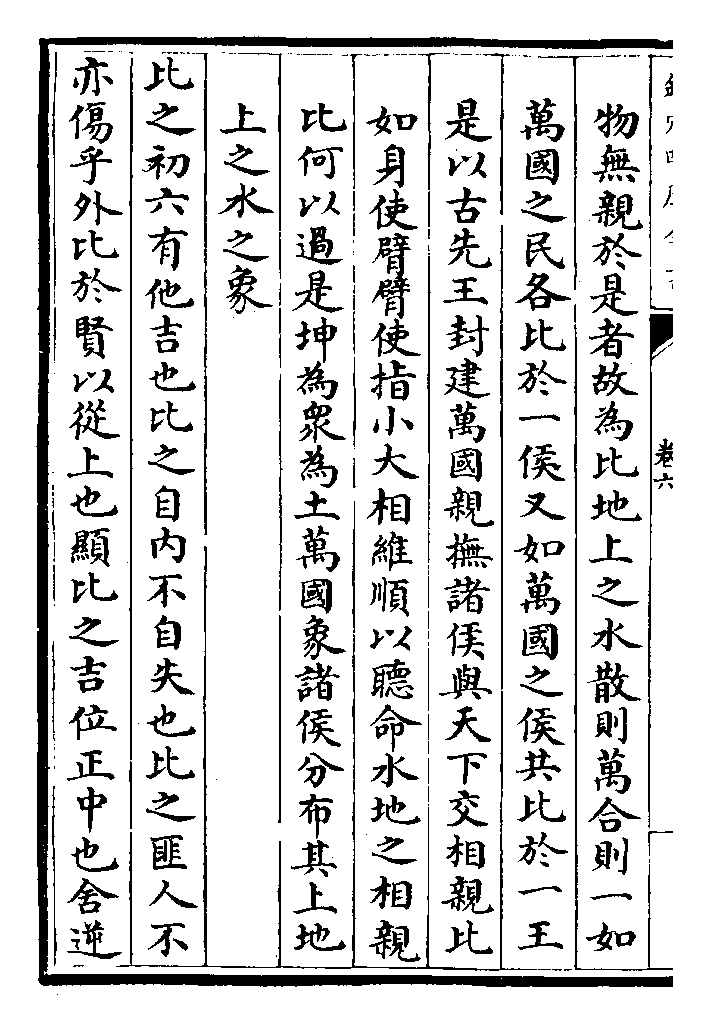 物無親於是者故為比地上之水散則萬合則一如
萬國之民各比於一侯又如萬國之侯共比於一王
是以古先王封建萬國親撫諸侯與天下交相親比
如身使臂臂使指小大相維順以聽命水地之相親
比何以過是坤為衆為土萬國象諸侯分布其上地
上之水之象
比之初六有他吉也比之自内不自失也比之匪人不
亦傷乎外比於賢以從上也顯比之吉位正中也舍逆
卷六